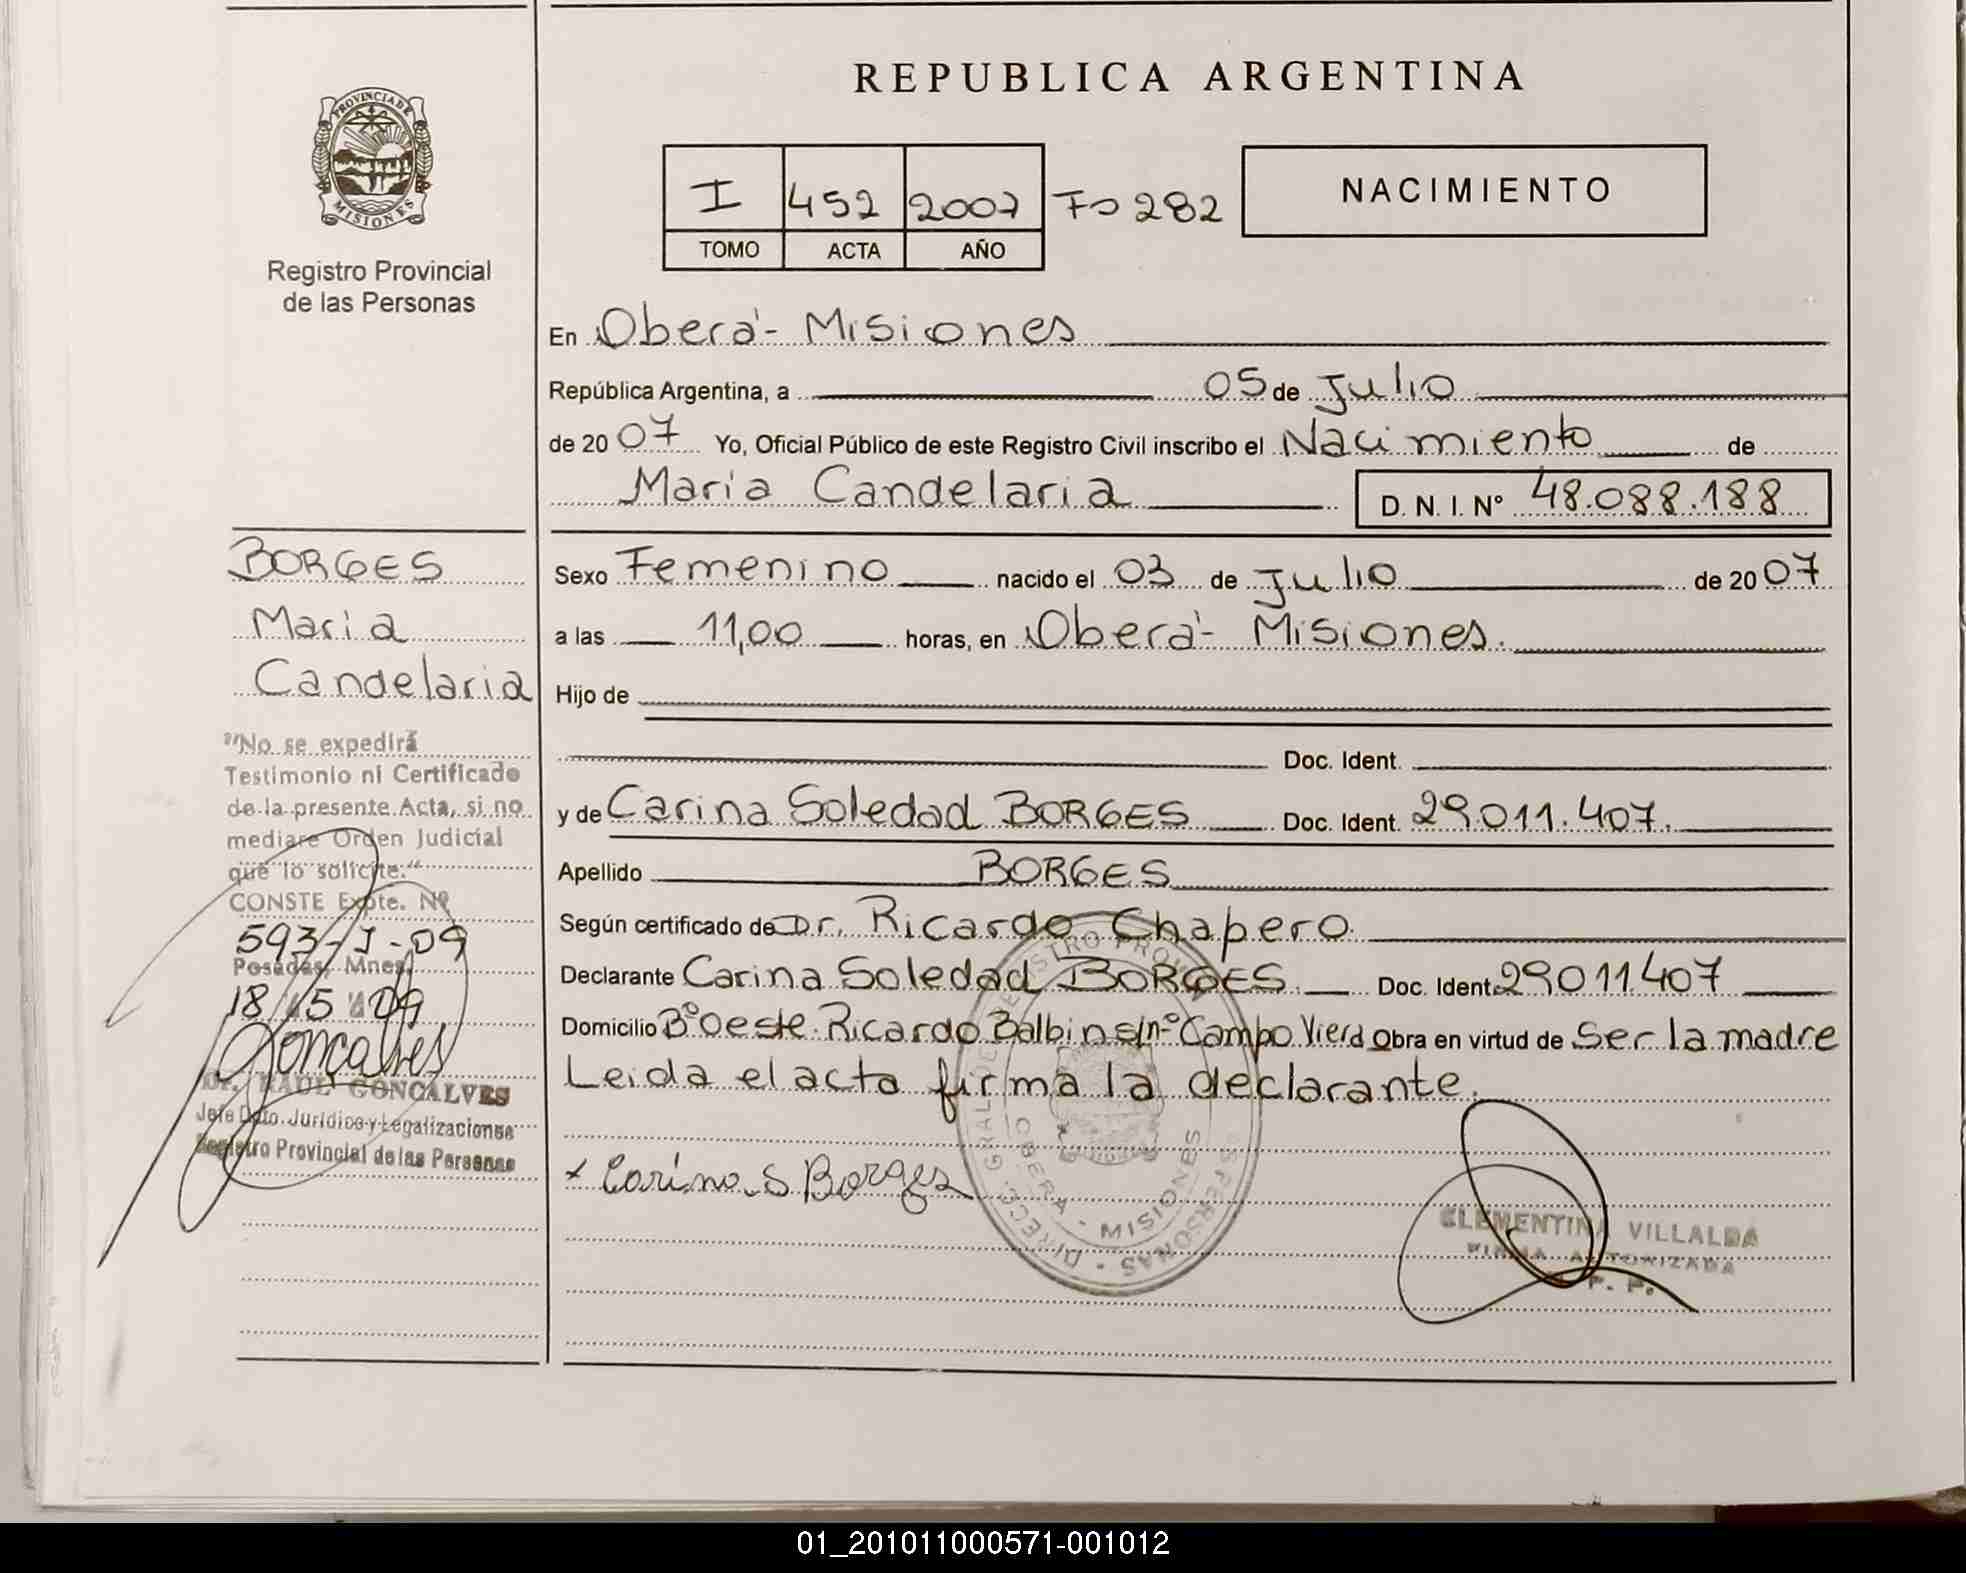 REPUBLICA ARGENTINA
PROVINCIA DE MISIONES
Registro Provincial
de las Personas
I 452 2007 Fo 282
TOMO ACTA AÑO
NACIMIENTO
En Oberá - Misiones
República Argentina, a 05 de Julio
de 20 07 Yo, Oficial Público de este Registro Civil inscribo el Nacimiento de
María Candelaria D. N. I. N° 48.088.188
BORGES
María
Candelaria
"No se expedirá
Testimonio ni Certificado
de la presente Acta, si no
mediare Orden Judicial
que lo solicite."
CONSTE Expte. Nº
593-J-09
Posadas, Mnes,
18 5 09
Goncalves
Dr. RAUL GONCALVES
Jefe Dpto. Jurídico y Legalizaciones
Registro Provincial de las Personas
Sexo Femenino nacido el 03 de Julio de 20 07
a las 11,00 horas, en Oberá - Misiones.
Hijo de
Doc. Ident.
y de Carina Soledad BORGES Doc. Ident. 29011.407.
Apellido BORGES
Según certificado de Dr. Ricardo Chapero.
Declarante Carina Soledad BORGES. Doc. Ident. 29011.407
Domicilio B° Oeste. Ricardo Balbin s/n° Campo Viera Obra en virtud de Ser la madre
Leida el acta firma la declarante.
x Carina S Borges
OBERA - MISIONES
CLEMENTINA VILLALBA
FIRMA AUTORIZADA
01_201011000571-001012